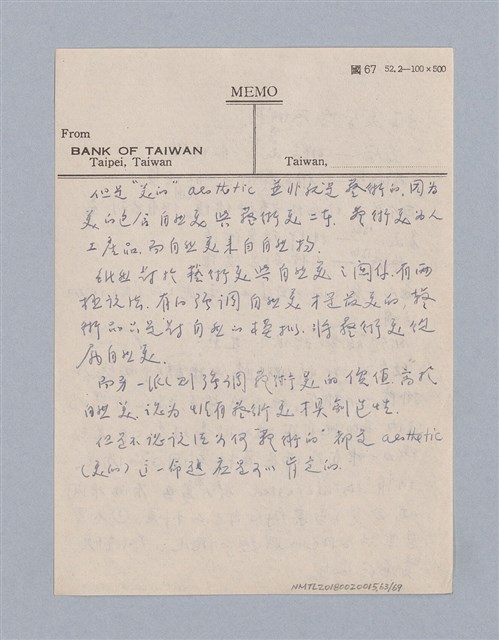 國67 52.2—100×500
MEMO
From
BANK OF TAIWAN
Taipei, Taiwan
Taiwan,
但是"美的" aesthetic 並非就是藝術的,因為
美的包含自然美與藝術美二者.藝術美為人
工產品,而自然美來自自然物.
對於藝術美與自然美之關係,有兩
種說法.有的強調自然美才是最美的,藝
術品只是對自然的模擬.將藝術美從
屬自然美.
而另一派則強調藝術美的價值高於
自然美,認為唯有藝術美才具創造性.
但是不論說法如何"藝術的"都是 aesthetic
(美的)這一命題應是可以肯定的.
NMTL20180020015,63/69